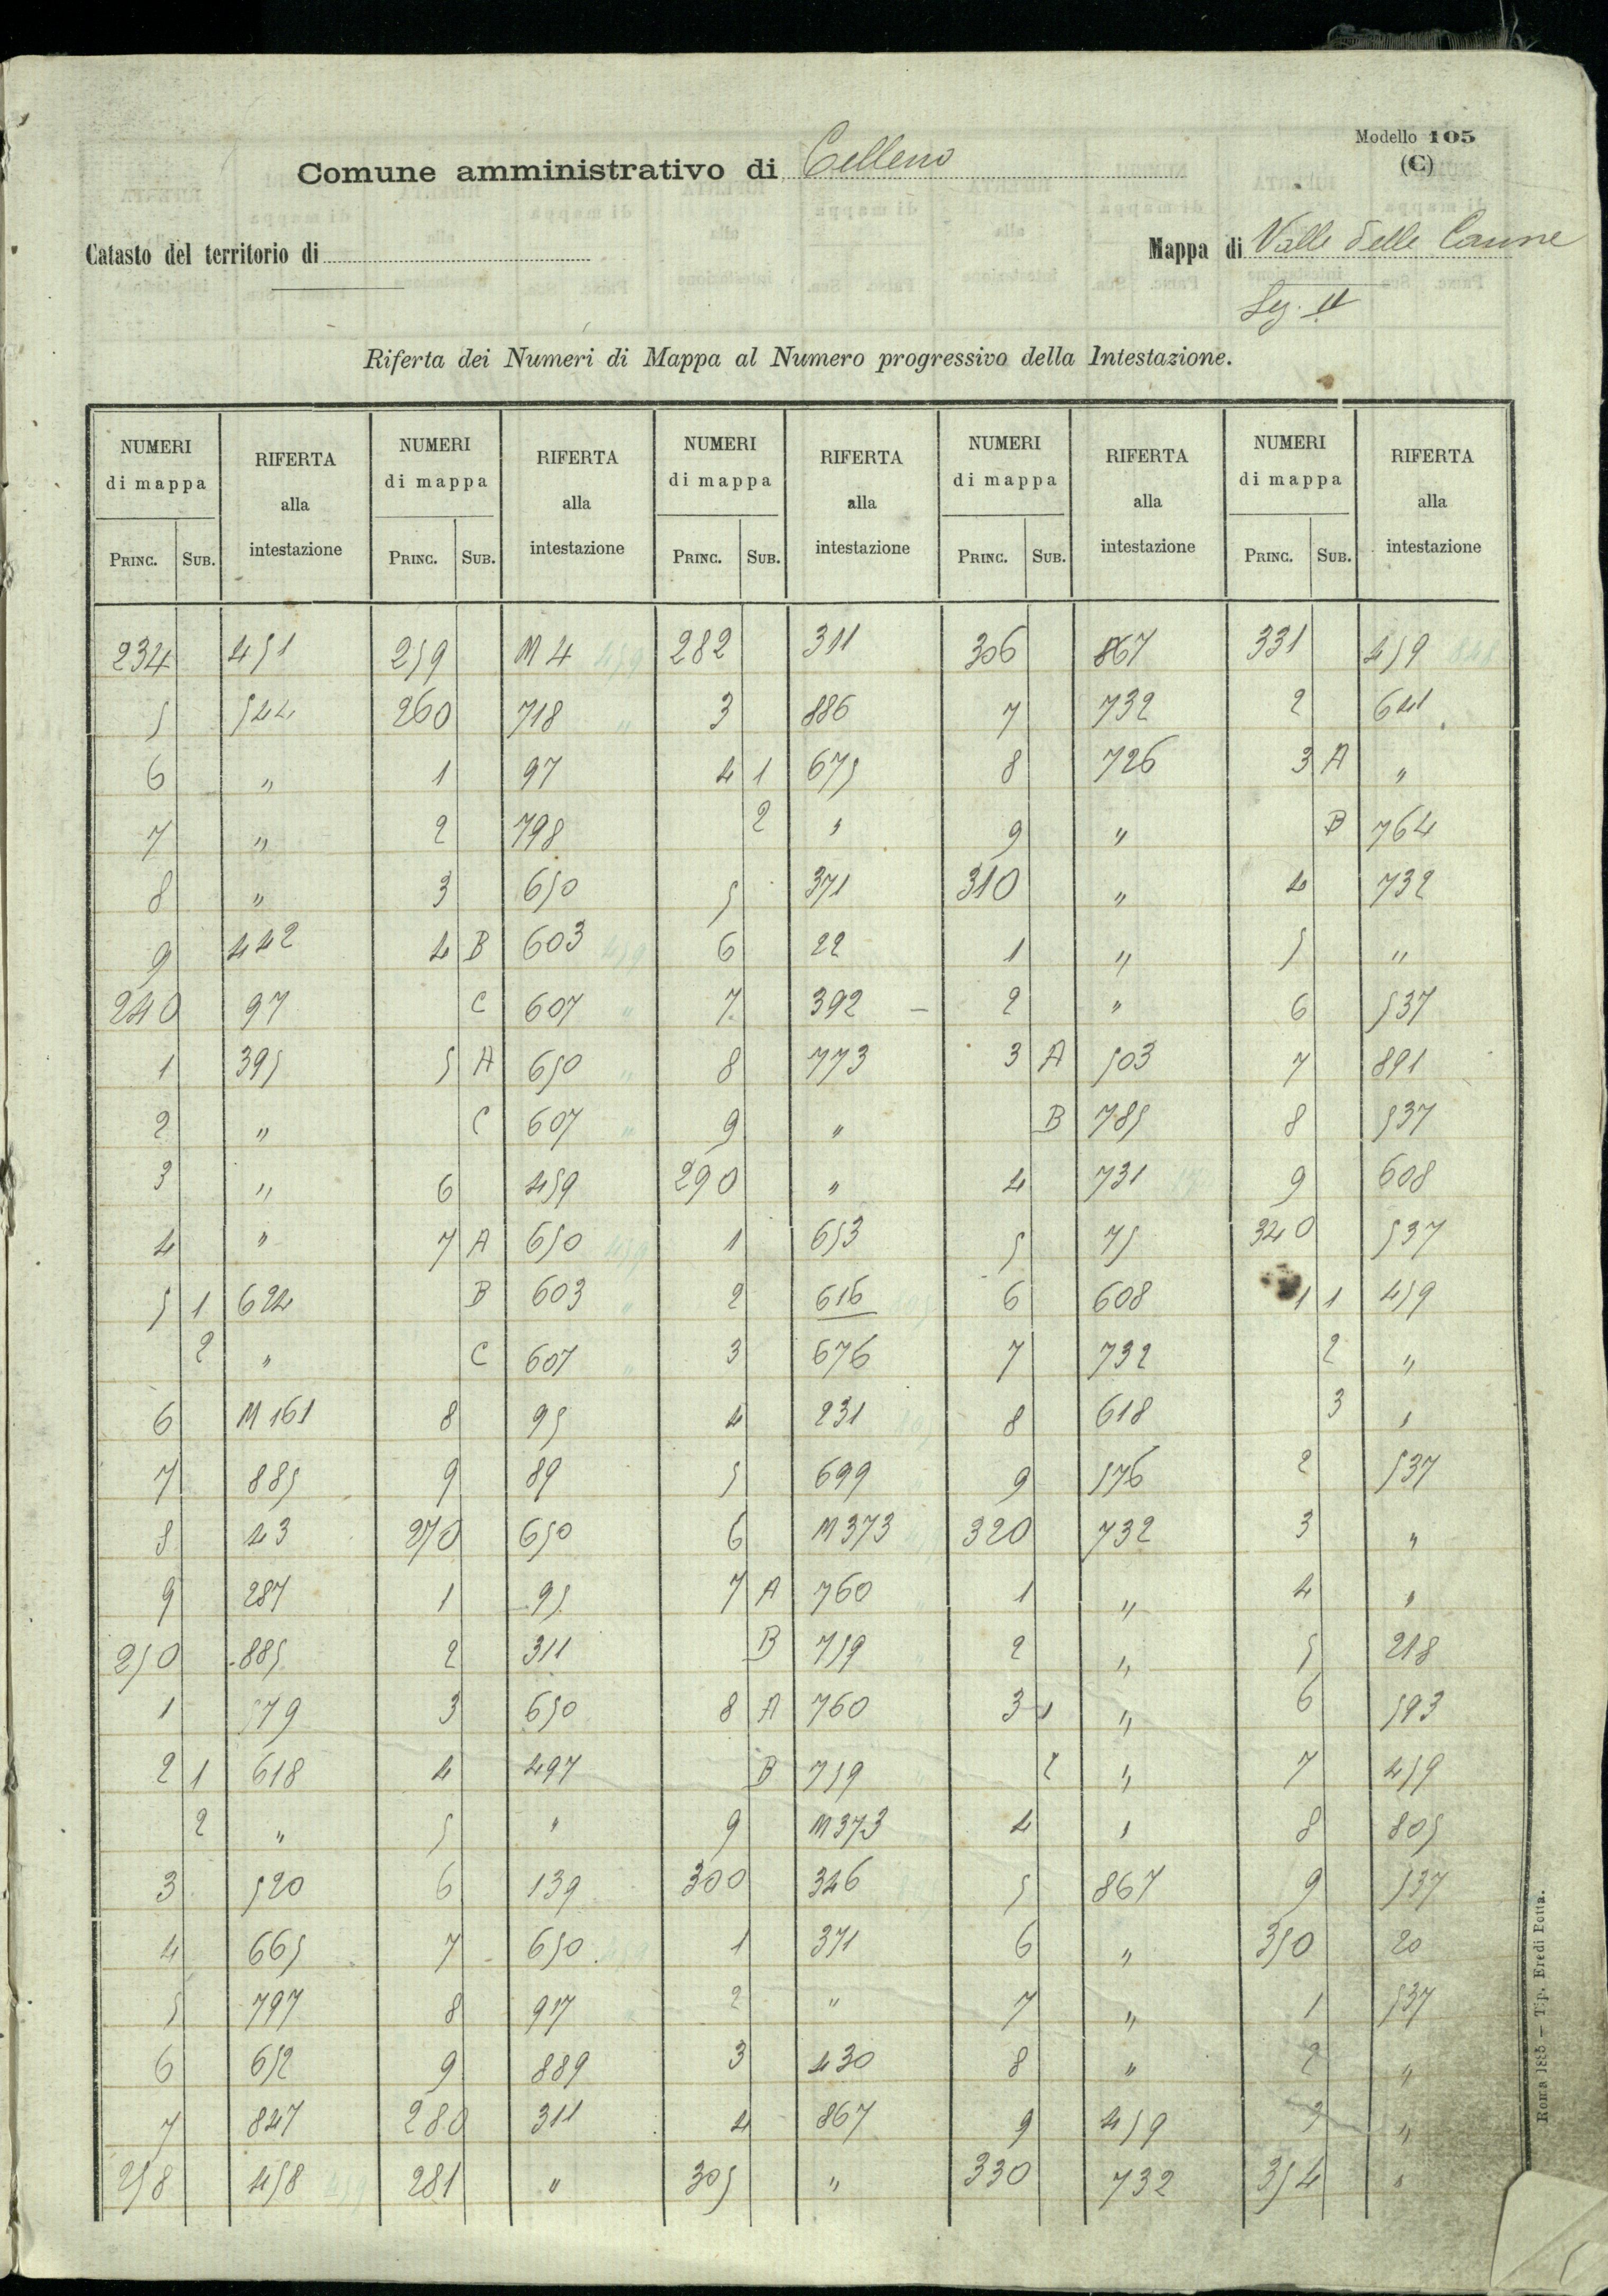 Modello 105
(C)
Comune amministrativo di Celleno
Catasto del territorio di
Mappa di Valle delle Canne
Sez. II
Riferta dei Numeri di Mappa al Numero progressivo della Intestazione.
NUMERI di mappa RIFERTA alla intestazione NUMERI di mappa RIFERTA alla intestazione NUMERI di mappa RIFERTA alla intestazione NUMERI di mappa RIFERTA alla intestazione NUMERI di mappa RIFERTA alla intestazione
PRINC. SUB. PRINC. SUB. PRINC. SUB. PRINC. SUB. PRINC. SUB.
234 451 259 M 4 459 282 311 306 867 331 459 848
5 544 260 718 " 3 886 7 732 2 641
6 " 1 97 4 1 675 8 726 3 A "
7 " 2 798 2 " 9 " B 764
8 " 3 650 5 371 310 " 4 732
9 442 4 B 603 459 6 22 1 " 5 "
240 97 C 607 " 7 392 – 2 " 6 537
1 395 5 A 650 " 8 773 3 A 503 7 891
2 " C 607 " 9 " B 785 8 537
3 " 6 459 290 " 4 731 9 608
4 " 7 A 650 459 1 653 5 75 340 537
5 1 624 B 603 " 2 616 6 608 1 1 459
2 " C 607 " 3 676 7 732 2 "
6 M 161 8 95 4 231 8 618 3 "
7 885 9 89 5 699 9 576 2 537
8 43 270 650 6 M 373 320 732 3 "
9 287 1 95 7 A 760 1 " 4 "
250 885 2 311 B 759 2 " 5 218
1 579 3 650 8 A 760 3 1 " 6 593
2 1 618 4 497 B 759 2 " 7 459
2 " 5 " 9 M 373 4 " 8 805
3 520 6 139 300 346 5 867 9 537
4 665 7 650 459 1 371 6 " 350 20
5 797 8 917 2 " 7 " 1 537
6 652 9 889 3 430 8 " 2 "
7 847 280 311 4 867 9 459 3 "
258 458 459 281 " 305 " 330 732 354 "
Roma 1885 – Tip. Eredi Botta.